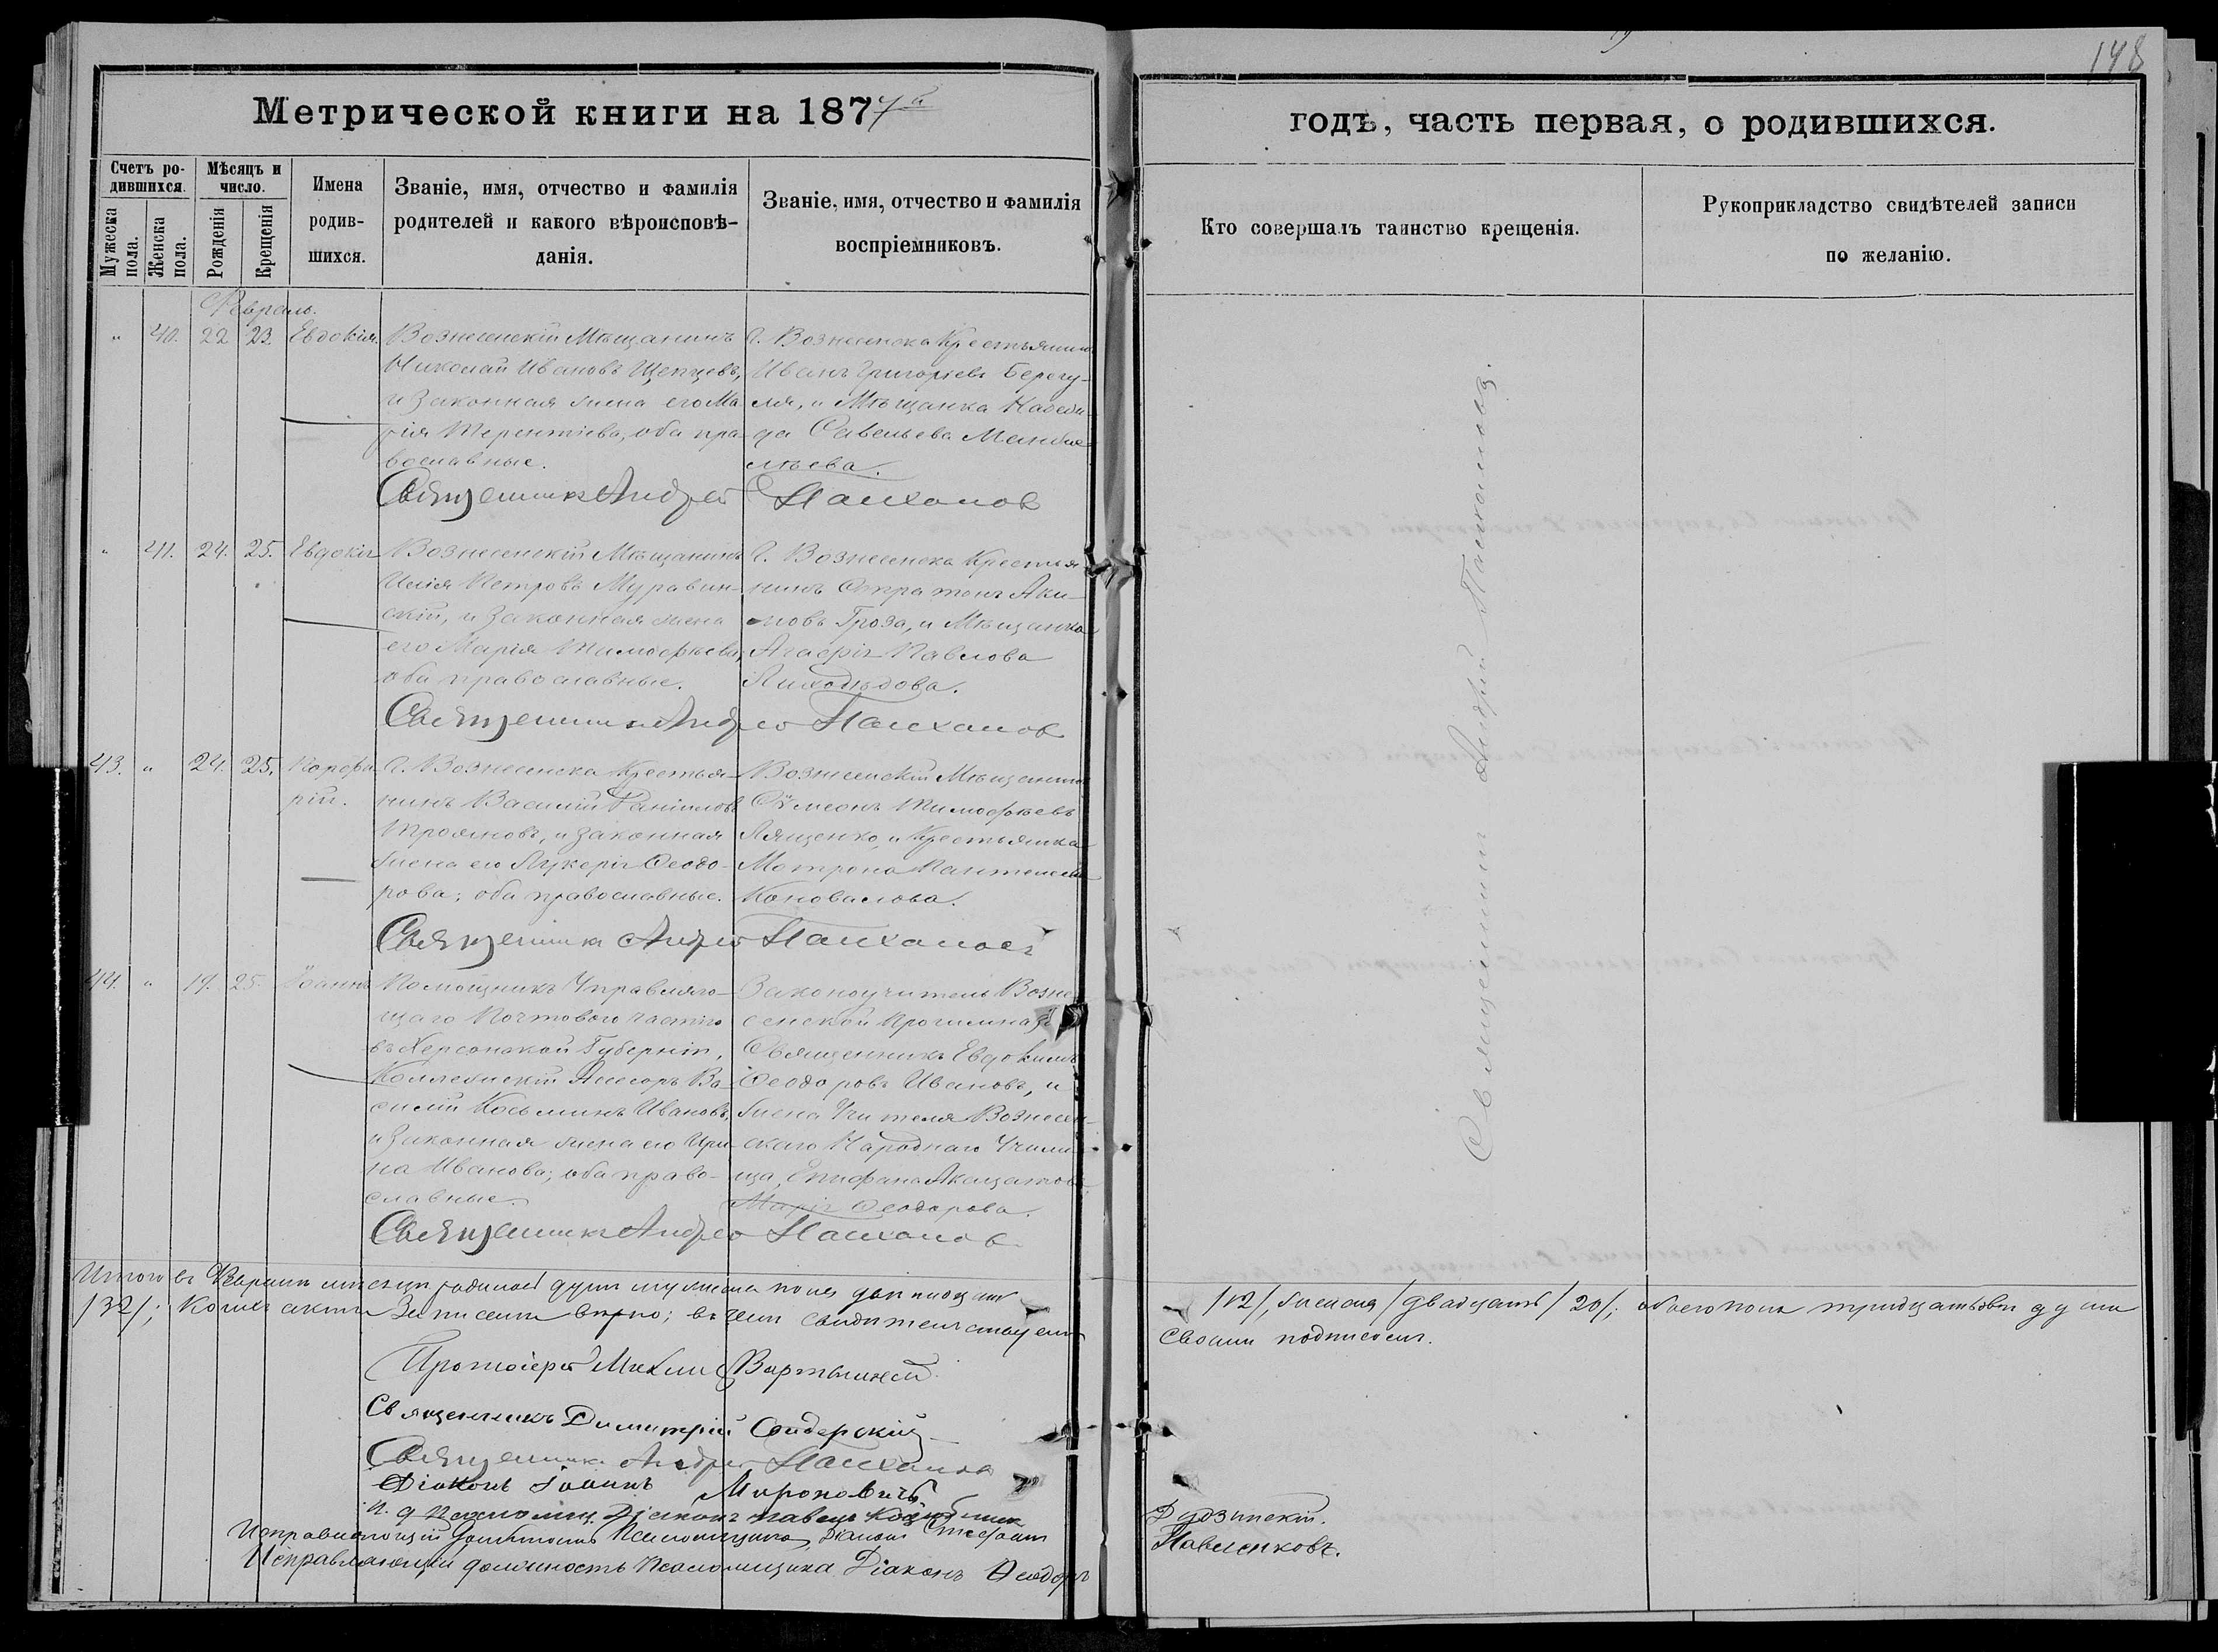 148
Метрической книги на 1877й
годъ, часть первая, о родившихся.
Счетъ родившихся.
Мужеска пола.
Женска пола.
Мѣсяцъ и число.
Рожденія
Крещенія
Имена родившихся.
Званіе, имя, отчество и фамилія
родителей и какого вѣроисповѣ-
данія.
Званіе, имя, отчество и фамилія
воспріемниковъ.
Кто совершалъ таинство крещенія.
Рукоприкладство свидѣтелей записи
по желанію.
Февраль.
" 40. 22 23. Евдокія.
Вознесенскій Мѣщанинъ
Николай Ивановъ Щепцевъ,
и законная жена его Ма
рія Терентіева, оба пра-
вославные.
Г. Вознесенска Крестьянинъ
Иванъ Григорьевъ Берегу-
ля, и Мѣщанка Надеж-
да Савельева
Священникъ Андрей Пасхаловъ
" 41. 24. 25. Евдокія
Вознесенскій Мѣщанинъ
Илія Петровъ Муравин-
скій, и законная жена
его Марія Тимофѣева,
оба православные.
Г. Вознесенска Крестья
нинъ Стратонъ Аки-
мовъ Гроза, и Мѣщанка
Агафія Павлова
Лиходѣдова.
Священникъ Андрей Пасхаловъ
43. " 24. 25. Порфи
рій.
Г. Вознесенска Крестья-
нинъ Василій Даніиловъ
Трояновъ, и законная
жена его Лукерія Феодо-
рова; оба православные.
Вознесенскій Мѣщанинъ
Сѵмеонъ Тимофѣевъ
Лященко, и Крестьянка
Матрона
Коновалова.
Священникъ Андрей Пасхаловъ
44. " 19. 25. Іоаннъ
Помощникъ Управляю-
щаго Почтовою частію
въ Херсонской Губерніи,
Коллежскій Ассесоръ Ва-
силій Косьминъ Ивановъ,
и законная жена его Ири-
на Иванова; оба право-
славные.
Законоучитель Возне
сенской Прогимназіи
Священникъ Евдокимъ
Феодоровъ Ивановъ, и
жена Учителя Вознесен-
скаго Народнаго Учили
ща, Епифана
Марія Феодорова.
Священникъ Андрей Пасхаловъ
Священникъ Андрей Пасхаловъ.
Итого въ Февралѣ мѣсяцѣ родилось душъ мужеска пола двѣнадцать /12/, женска /двадцать/ 20/; обоего пола тридцать двѣ души
/32/; коихъ акты записаны вѣрно; въ чемъ свидѣтельствуемъ своимъ подписомъ.
Протоіерей
Священникъ Димитрій Сендерскій
Священникъ Андрей Пасхаловъ
Діаконъ Іоаннъ Мироновичъ
И. д. Псаломщ. Діаконъ Павелъ
Исправляющій должность Псаломщика, Діаконъ Стефанъ Дудзинскій.
Исправляющій должность Псаломщика Діаконъ Феодоръ Павленковъ.